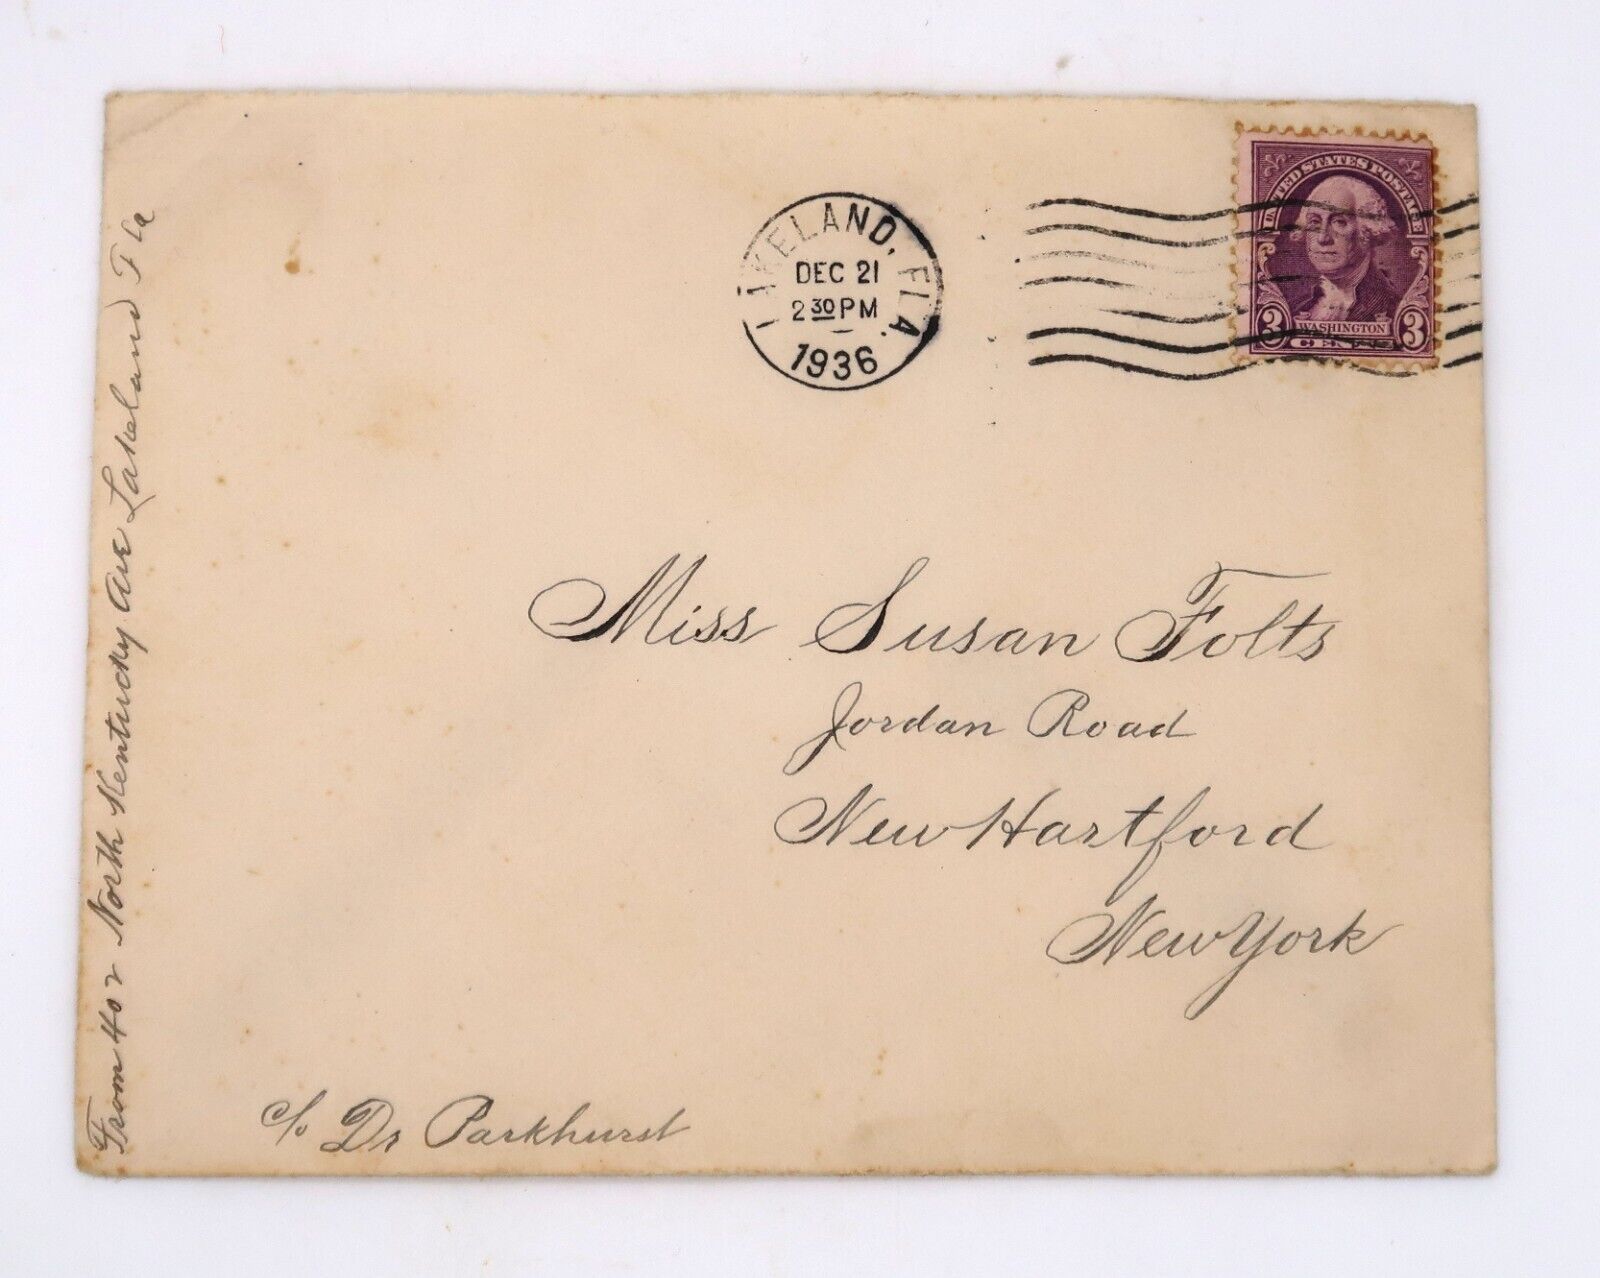 LAKELAND, FLA.
DEC 21
2 30 PM
1936
UNITED STATES POSTAGE
3 WASHINGTON 3
CENTS
Miss Susan Folts
Jordan Road
New Hartford
New York
c/o Dr Parkhurst
From 402 North Kentucky Ave Lakeland Fla